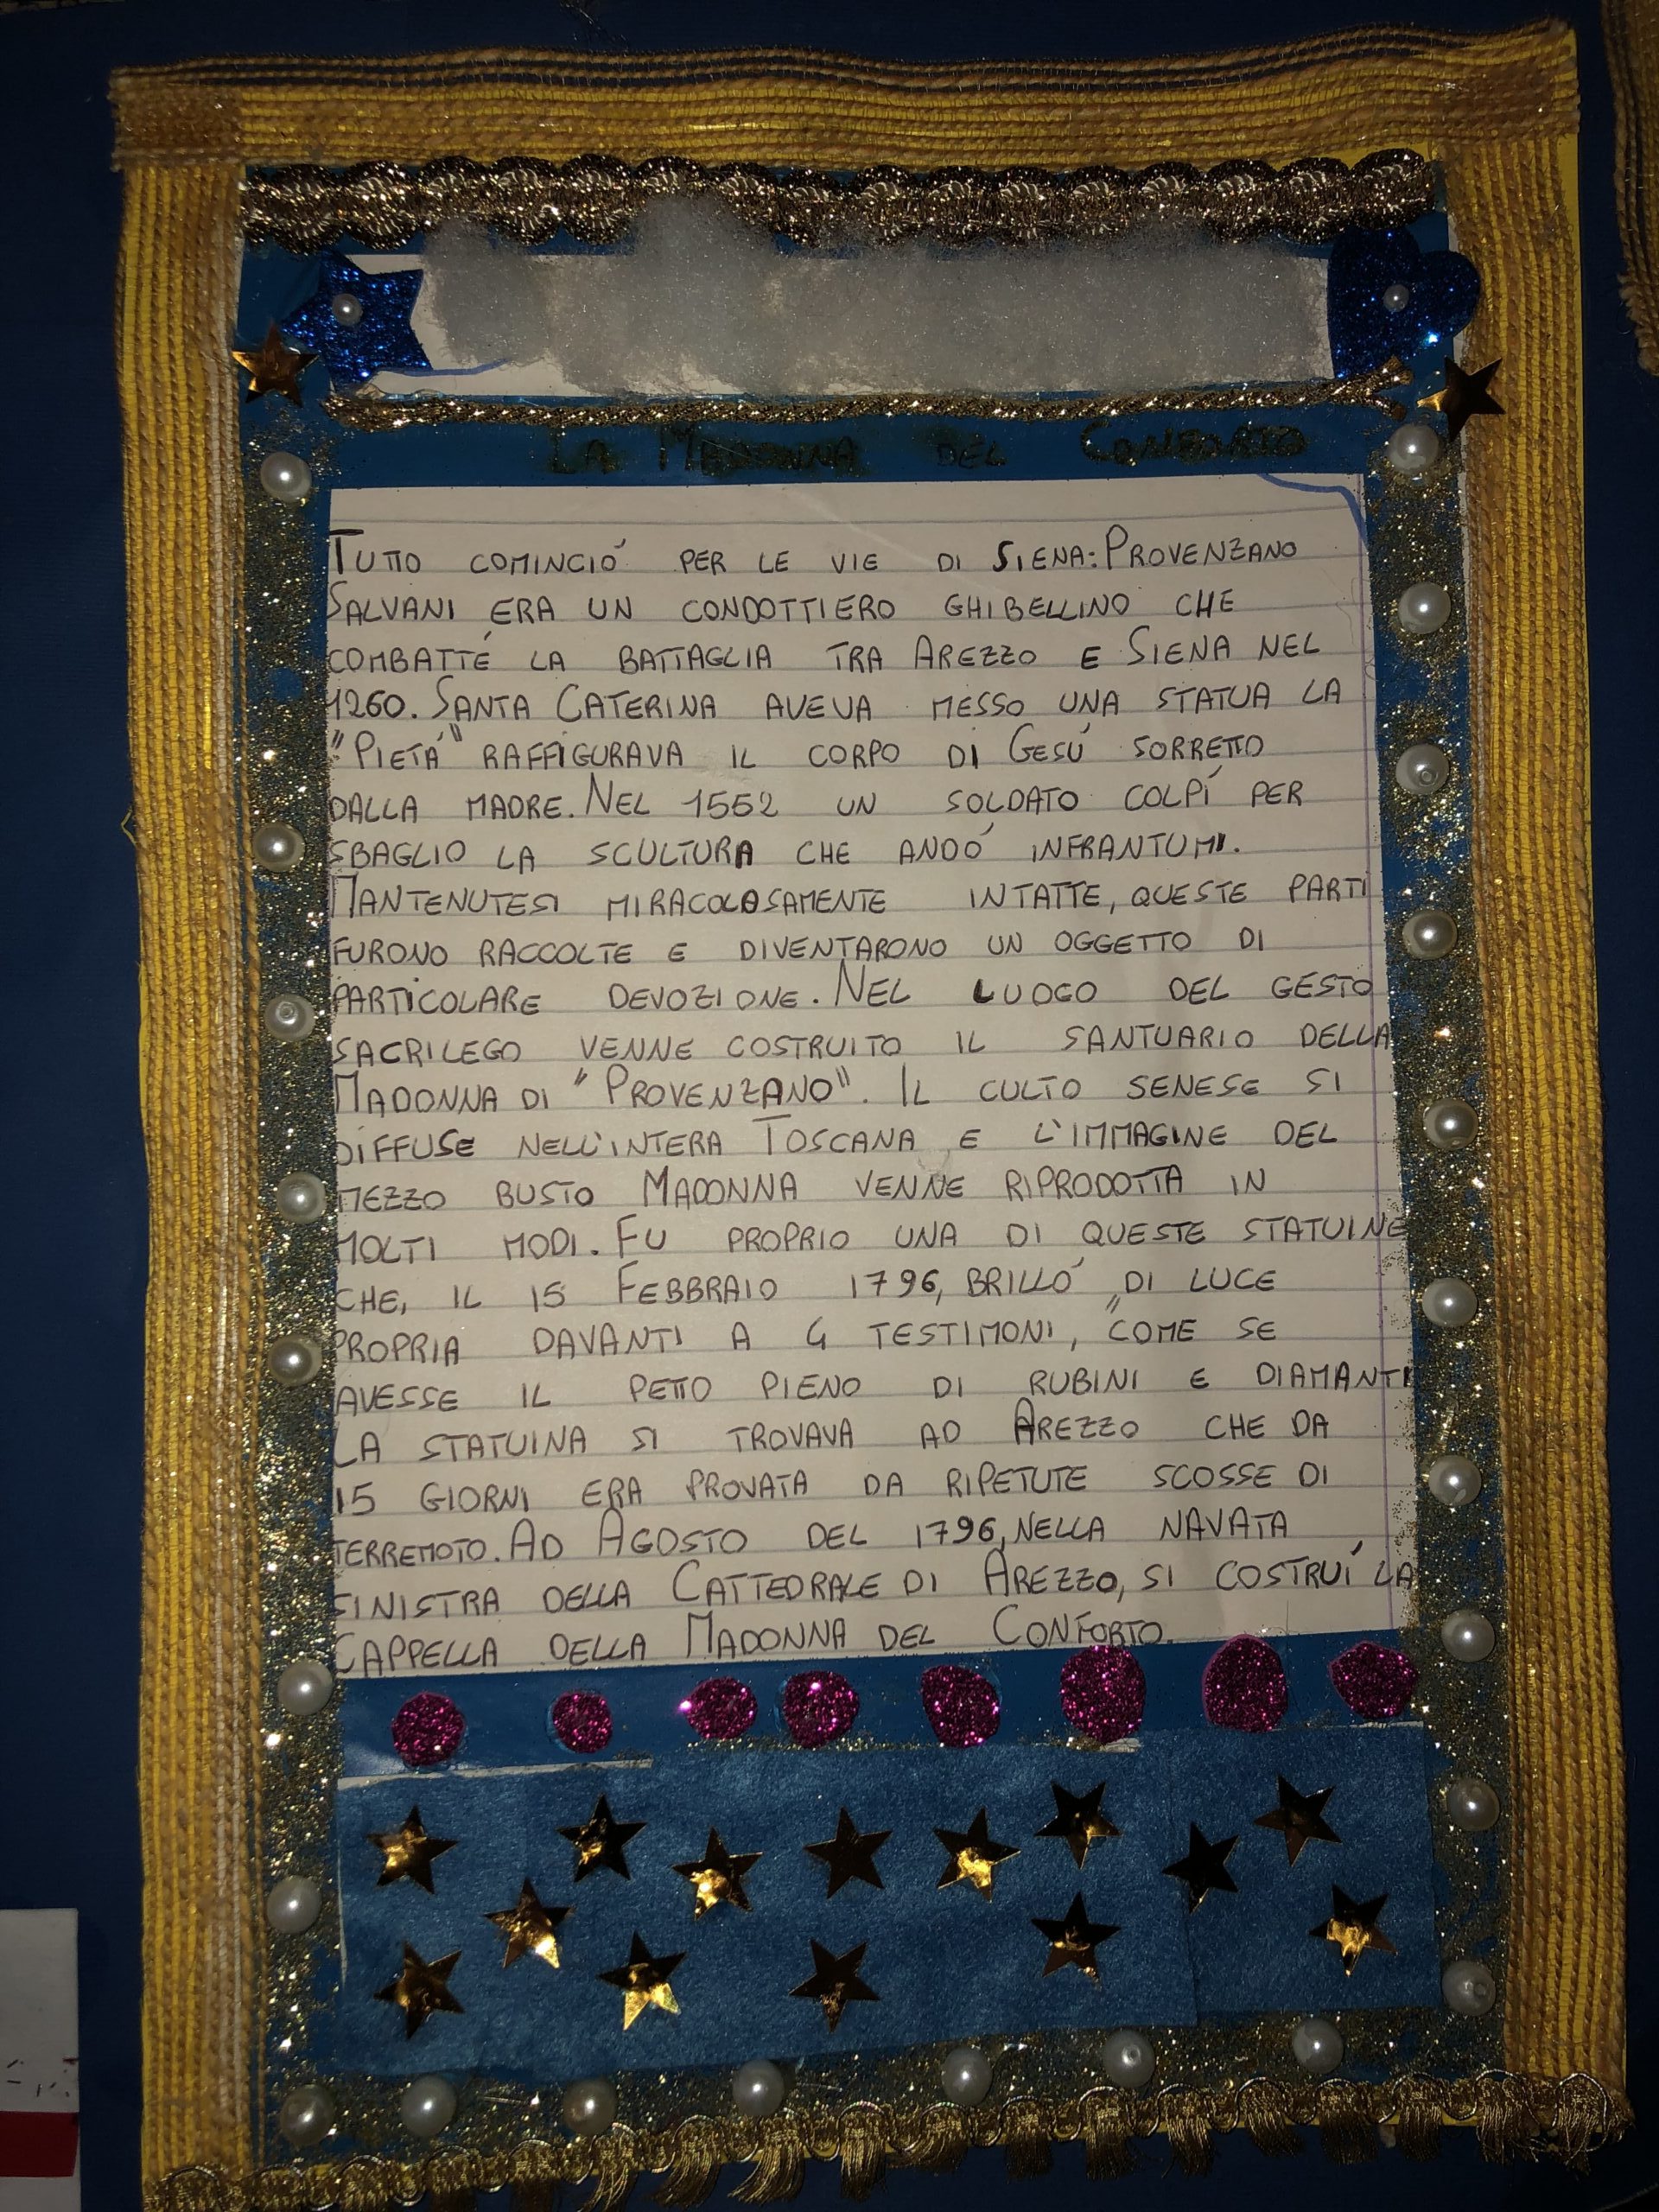 La Madonna del Conforto
Tutto cominció per le vie di Siena: Provenzano
Salvani era un condottiero ghibellino che
combatté la battaglia tra Arezzo e Siena nel
1260. Santa Caterina aveva messo una statua la
"Pietá" raffigurava il corpo di Gesú sorretto
dalla madre. Nel 1552 un soldato colpí per
sbaglio la scultura che andó infrantumi.
Mantenutesi miracolosamente intatte, queste parti
furono raccolte e diventarono un oggetto di
particolare devozione. Nel luogo del gesto
sacrilego venne costruito il santuario della
Madonna di "Provenzano". Il culto senese si
diffuse nell'intera Toscana e l'immagine del
mezzo busto Madonna venne riprodotta in
molti modi. Fu proprio una di queste statuine
che, il 15 Febbraio 1796, brilló di luce
propria davanti a 4 testimoni, "come se
avesse il petto pieno di rubini e diamanti
La statuina si trovava ad Arezzo che da
15 giorni era provata da ripetute scosse di
terremoto. Ad Agosto del 1796, nella navata
sinistra della Cattedrale di Arezzo, si costruí la
Cappella della Madonna del Conforto.